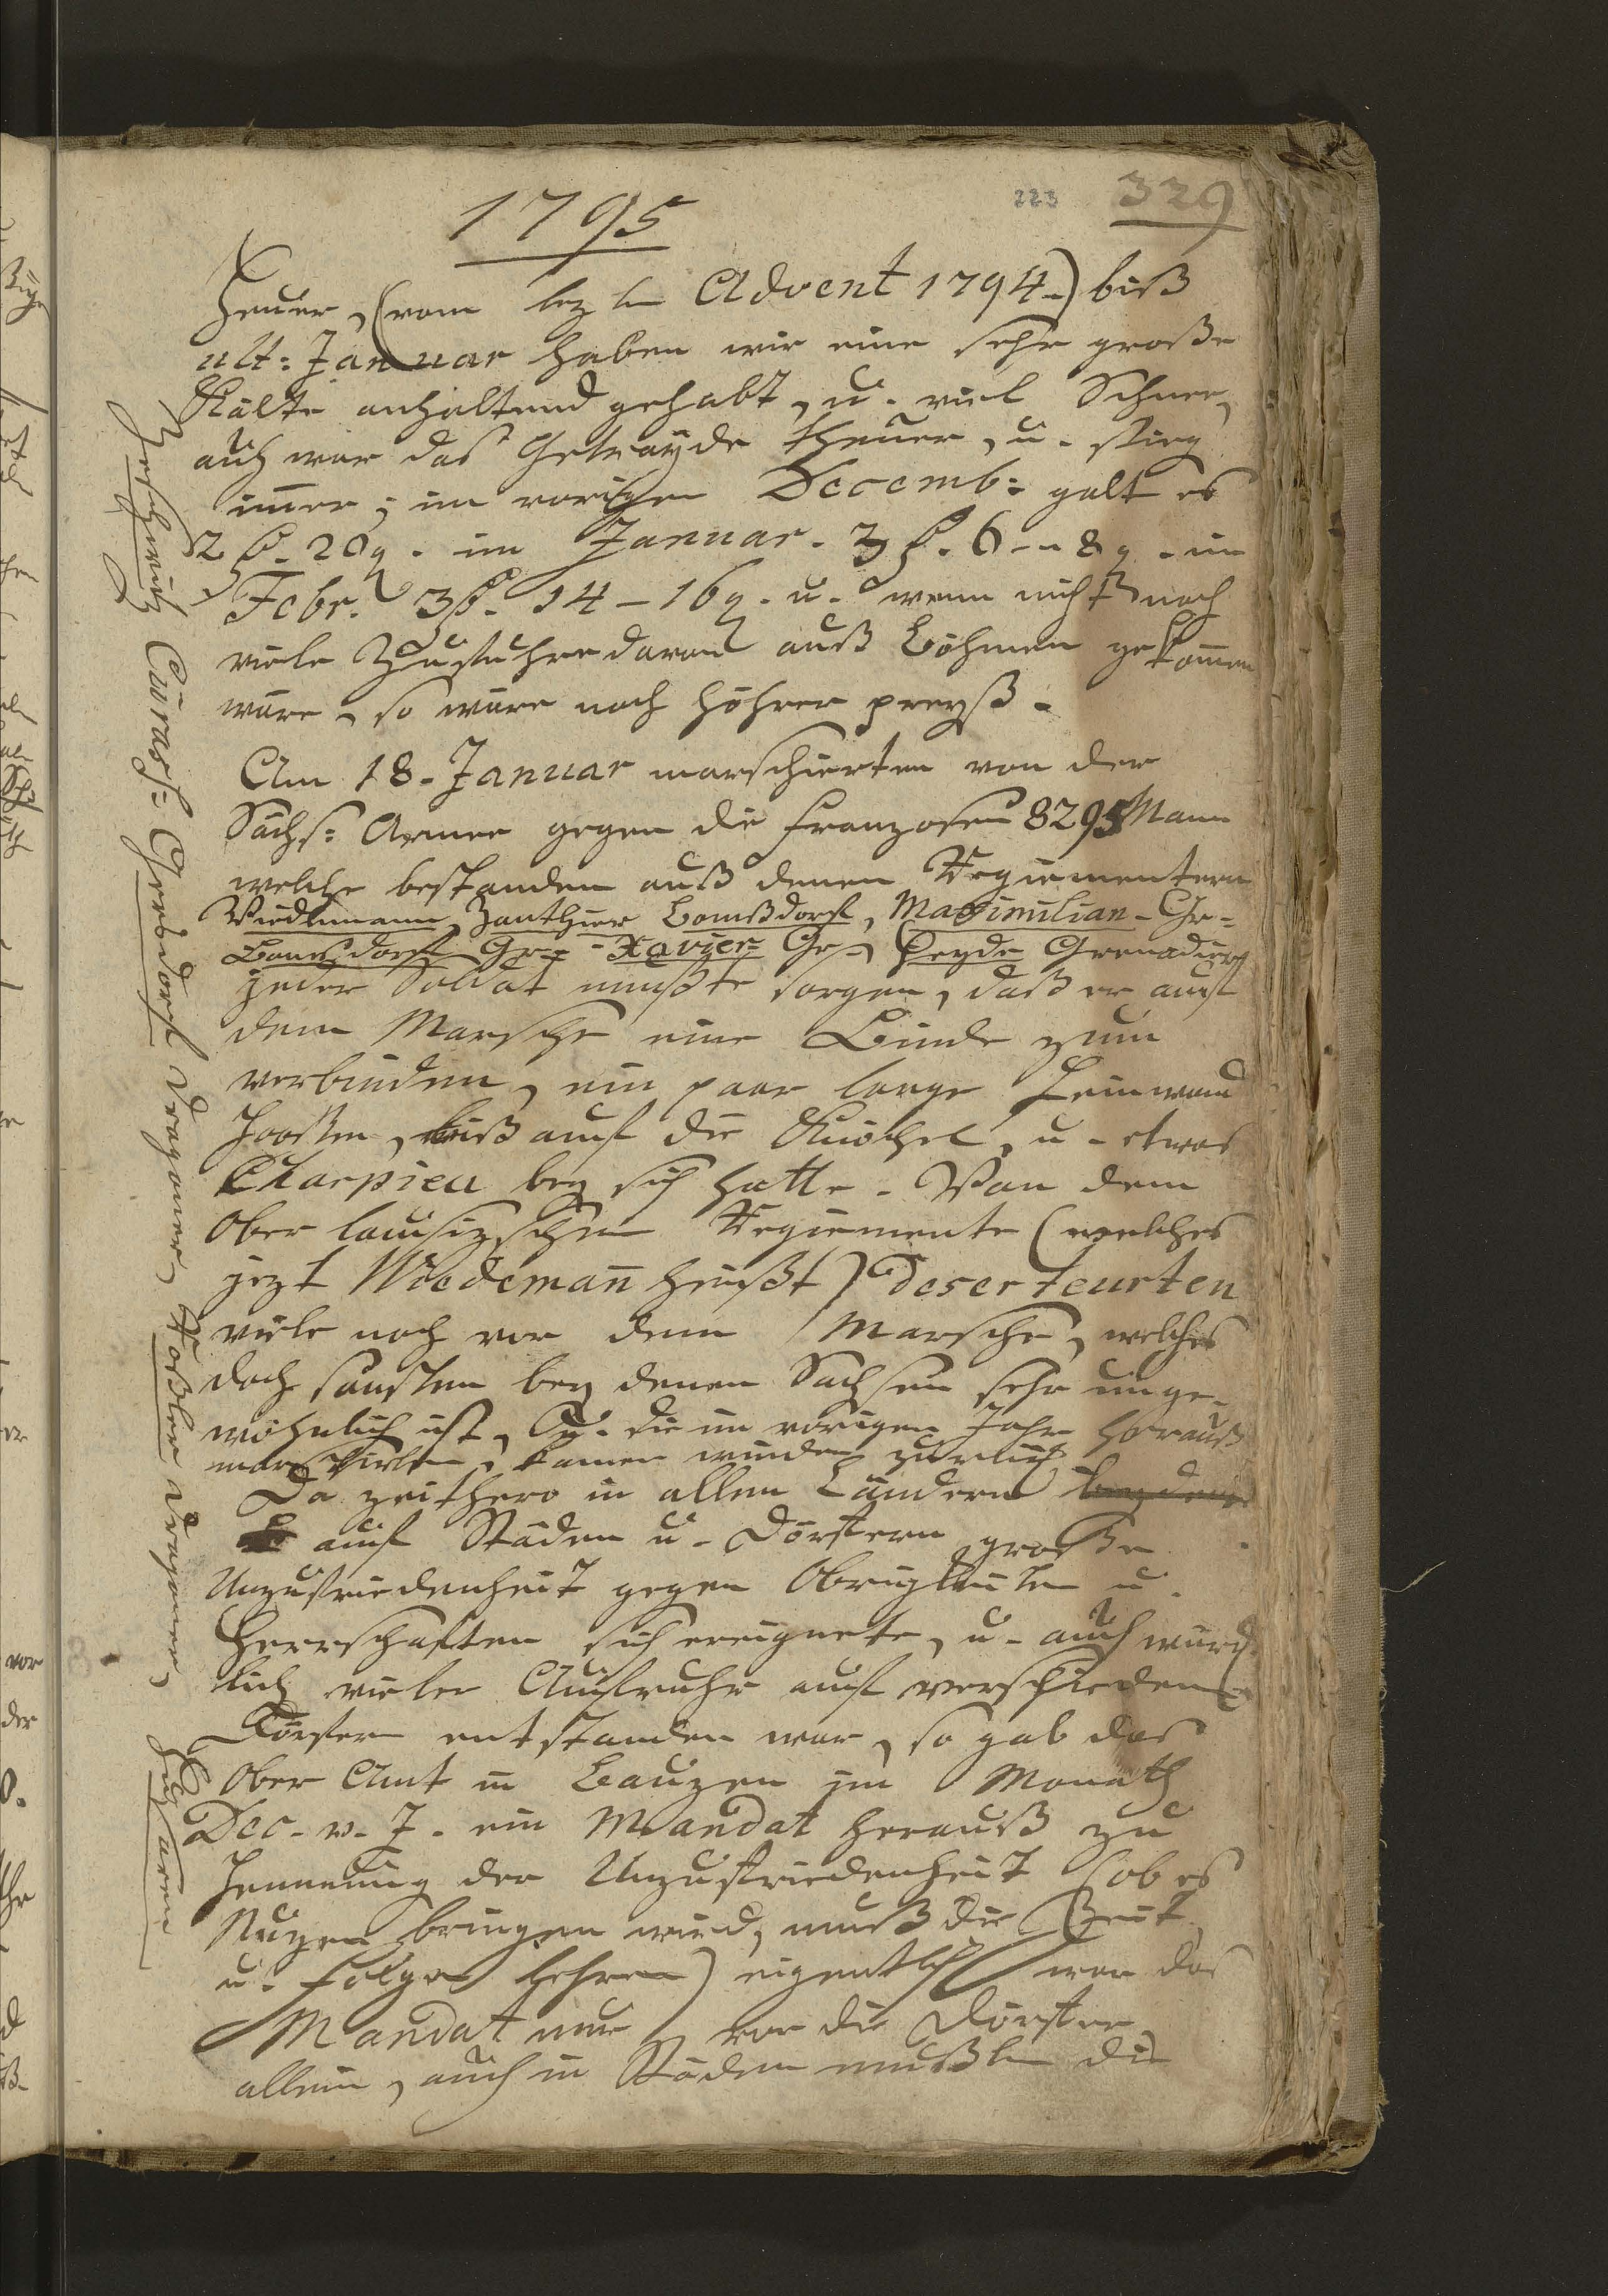 223 329
1795
Heuer, (vom lezten Advent 1794.) biß
ult: Januar haben wir eine sehr große
Kälte anhaltend gehabt, u. viel Schnee,
auch war das Getrayde theuer, u. stieg
imer; im vorigen Decemb: galt es
2 f. 20 g. im Januar. 3 f. 6 - 8 g. im
Febr. 3 f. 14 - 16 g. u. wenn nicht noch
viele Zufuhre davon auß Böhmen gekomen
wäre, so wäre noch höhrer preyß.
Am 18. Januar marschierten von der
Sächs: Armee gegen die Franzosen 8295 Mann
welche bestanden auß denen Regiementern
Wiedemann, Zanthier Bomßdorf, Maximilian - Gr=
Bomsdorf Gr= - Xavier= Gr=, Heyde Grenadiers
jeder Soldat mußte sorgen, daß er auf
dem Marsche eine Binde zum
verbinden, ein paar lange Leinwand
Hoosen, biß auf die Knöchel, u. etwas
Charpieu bey sich hatte. Von dem
Ober lausizschen Regiemente (welches
jezt Wiedeman heißt) deserteurten
viele noch vor dem Marsche, welches
doch sonsten bey denen Sachsen sehr unge-
wöhnlich ist, die im vorigen Jahre herauß
marschirten, kamen wieder zurück
Da zeithero in allen Ländern
auf Städen u. Dörfern große
Unzufriedenheit gegen Obrigkeiten u.
Herrschaften sich ereignete, u. auch würck-
lich vieler Aufruhr auf verschiedene
Dörfern entstanden war, so gab das
Ober Amt in Bauzen im Monath
Dec. v. J. ein Mandat herauß zu
Hemmung der Unzufriedenheit (ob es
Nuzen bringen wird, muß die Zeit
u. Folge lehren) eigentlich war das
Mandat nur vor die Dörfer
allein, auch in Städen mußten die
Zezschwitz Cürass: Gersdorf Dragoner, Roßler Dragoner, Husaren